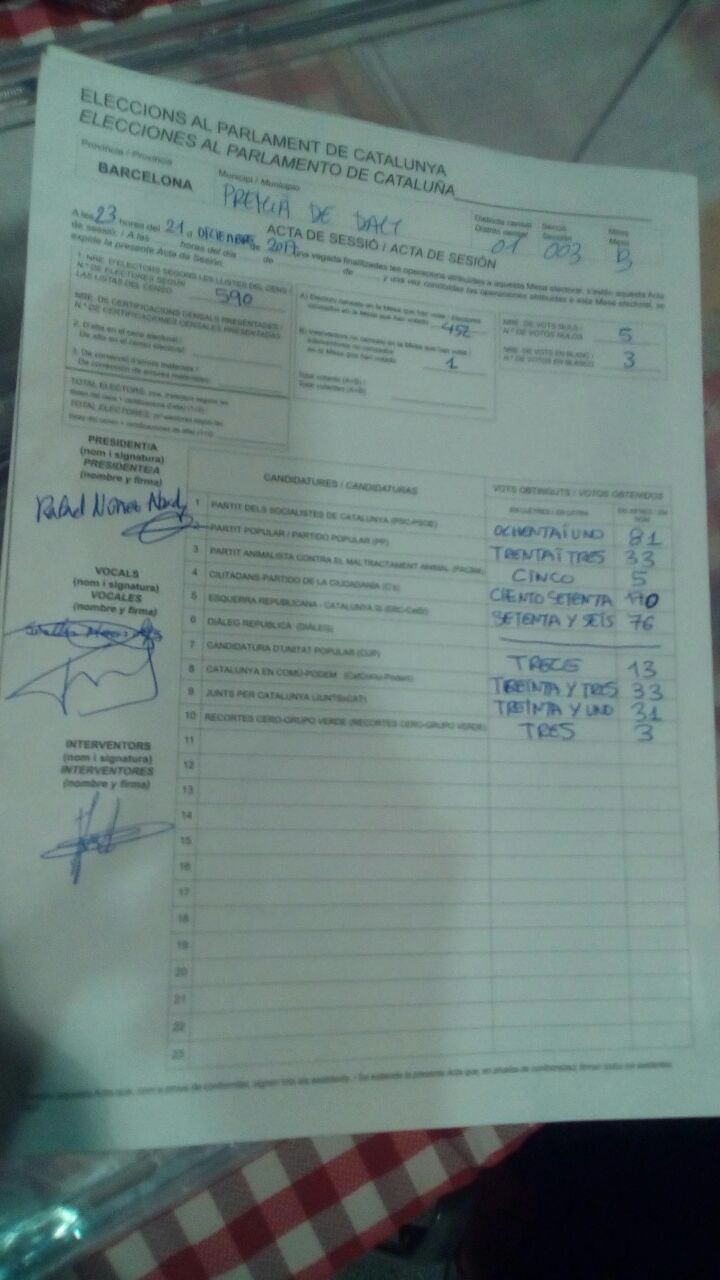 ELECCIONS AL PARLAMENT DE CATALUNYA
ELECCIONES AL PARLAMENTO DE CATALUÑA
Província / Provincia
Municipi / Municipio
BARCELONA
PREMIÀ DE DALT
Districte censal
Distrito censal
01
Secció
Sección
003
Mesa
Mesa
B
ACTA DE SESSIÓ / ACTA DE SESIÓN
A les 23 hores del 21 d DICIEMBRE de 2017 una vegada finalitzades les operacions atribuïdes a aquesta Mesa electoral, s'estén aquesta Acta
de sessió. / A las hores del día de de y una vez concluidas las operaciones atribuidas a esta Mesa electoral, se
expide la presente Acta de Sesión.
1. NRE. D'ELECTORS SEGONS LES LLISTES DEL CENS /
N.º DE ELECTORES SEGÚN
LAS LISTAS DEL CENSO
590
NRE. DE CERTIFICACIONS CENSALS PRESENTADES /
N.º DE CERTIFICACIONES CENSALES PRESENTADAS
2. D'alta en el cens electoral /
De alta en el censo electoral:
3. De correcció d'errors materials /
De corrección de errores materiales:
TOTAL ELECTORS
TOTAL ELECTORES
A) Electors censats en la Mesa que han votat / Electores
censados en la Mesa que han votado
452
B) Interventors no censats en la Mesa que han votat /
Interventores no censados
en la Mesa que han votado
1
Total votants (A+B) /
Total votantes (A+B)
NRE. DE VOTS NULS /
N.º DE VOTOS NULOS
5
NRE. DE VOTS EN BLANC /
N.º DE VOTOS EN BLANCO
3
PRESIDENT/A
(nom i signatura)
PRESIDENTE/A
(nombre y firma)
VOCALS
(nom i signatura)
VOCALES
(nombre y firma)
INTERVENTORS
(nom i signatura)
INTERVENTORES
(nombre y firma)
CANDIDATURES / CANDIDATURAS
VOTS OBTINGUTS / VOTOS OBTENIDOS
EN LLETRES / EN LETRA
1 PARTIT DELS SOCIALISTES DE CATALUNYA (PSC-PSOE) OCHENTAIUNO 81
2 PARTIT POPULAR / PARTIDO POPULAR (PP) TRENTAITRES 33
3 PARTIT ANIMALISTA CONTRA EL MALTRACTAMENT ANIMAL (PACMA) CINCO 5
4 CIUTADANS-PARTIDO DE LA CIUDADANÍA (C's) CIENTO SETENTA 170
5 ESQUERRA REPUBLICANA - CATALUNYA SÍ (ERC-CatSí) SETENTA Y SEIS 76
6 DIÀLEG REPUBLICÀ (DIÀLEG)
7 CANDIDATURA D'UNITAT POPULAR (CUP) TRECE 13
8 CATALUNYA EN COMÚ-PODEM (CatComú-Podem) TREINTA Y TRES 33
9 JUNTS PER CATALUNYA (JUNTSxCAT) TREINTA Y UNO 31
10 RECORTES CERO-GRUPO VERDE (RECORTES CERO-GRUPO VERDE) TRES 3
11
12
13
14
15
16
17
18
19
20
21
22
23